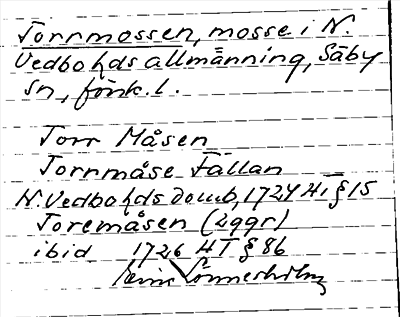 Torrmossen, mosse i N.
Vedbo hds allmänning, Säby
sn, försk. l.
Torr Måsen
Tornmåse Fällan
N. Vedbo hds domb, 1724 HT § 15
Toremåsen (2ggr)
ibid 1726 HT § 86
Lännerholm